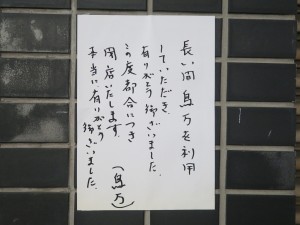 長い間鳥万を利用
していただき
ありがとう御ざいました。
この度都合につき
閉店いたします。
本当に有りがとう
御ざいました。
(鳥万)